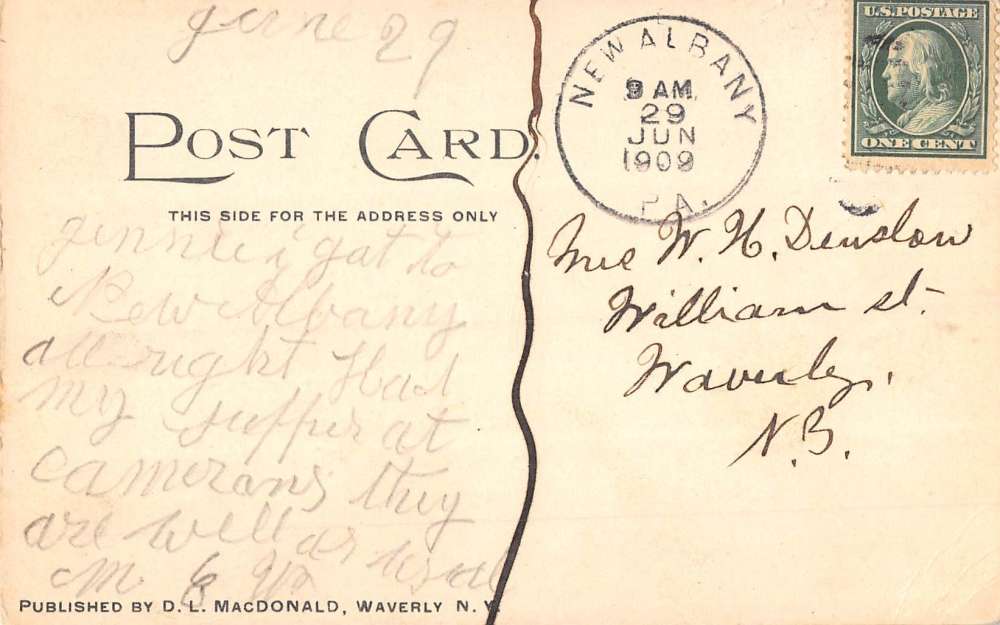 june 29
POST CARD.
THIS SIDE FOR THE ADDRESS ONLY
jennie i gat to
New Albany
all right Had
my supper at
camerans they
are well as usal
M
PUBLISHED BY D. L. MACDONALD, WAVERLY N.Y.
NEW ALBANY
9 AM
29
JUN
1909
PA.
U.S. POSTAGE
ONE CENT
Mrs W. H. Denslow
William st.
Waverly,
N.Y.